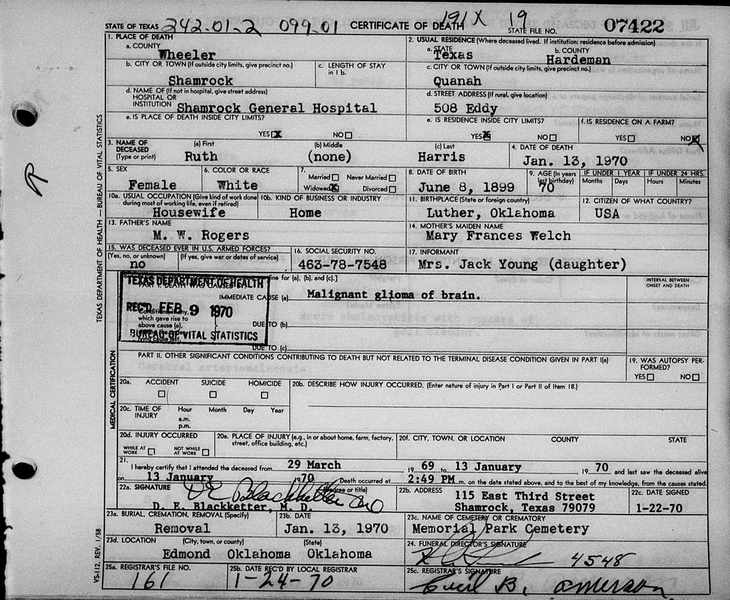 STATE OF TEXAS 242-01-2 099-01 CERTIFICATE OF DEATH 191X 19 STATE FILE NO. 07422
1. PLACE OF DEATH
a. COUNTY
Wheeler
2. USUAL RESIDENCE (Where deceased lived. If institution: residence before admission)
a. STATE b. COUNTY
Texas Hardeman
b. CITY OR TOWN (If outside city limits, give precinct no.) c. LENGTH OF STAY in 1 b.
Shamrock
c. CITY OR TOWN (If outside city limits, give precinct no.)
Quanah
d. NAME OF (If not in hospital, give street address)
HOSPITAL OR
INSTITUTION Shamrock General Hospital
d. STREET ADDRESS (If rural, give location)
508 Eddy
e. IS PLACE OF DEATH INSIDE CITY LIMITS?
YES X NO
e. IS RESIDENCE INSIDE CITY LIMITS?
YES X NO
f. IS RESIDENCE ON A FARM?
YES NO X
3. NAME OF DECEASED (Type or print) (a) First (b) Middle (c) Last
Ruth (none) Harris
4. DATE OF DEATH
Jan. 13, 1970
5. SEX
Female
6. COLOR OR RACE
White
7.
Married Never Married
Widowed X Divorced
8. DATE OF BIRTH
June 8, 1899
9. AGE (In years last birthday)
70
IF UNDER 1 YEAR IF UNDER 24 HRS.
Months Days Hours Minutes
10a. USUAL OCCUPATION (Give kind of work done during most of working life, even if retired)
Housewife
10b. KIND OF BUSINESS OR INDUSTRY
Home
11. BIRTHPLACE (State or foreign country)
Luther, Oklahoma
12. CITIZEN OF WHAT COUNTRY?
USA
13. FATHER'S NAME
M. W. Rogers
14. MOTHER'S MAIDEN NAME
Mary Frances Welch
15. WAS DECEASED EVER IN U.S. ARMED FORCES?
(Yes, no, or unknown) (If yes, give war or dates of service)
no
16. SOCIAL SECURITY NO.
463-78-7548
17. INFORMANT
Mrs. Jack Young (daughter)
(a), (b), and (c).]
INTERVAL BETWEEN ONSET AND DEATH
TEXAS DEPARTMENT OF HEALTH
REC'D FEB 9 1970
BUREAU OF VITAL STATISTICS
IMMEDIATE CAUSE (a) Malignant glioma of brain.
which gave rise to
above cause (a),
DUE TO (b)
DUE TO (c)
PART II. OTHER SIGNIFICANT CONDITIONS CONTRIBUTING TO DEATH BUT NOT RELATED TO THE TERMINAL DISEASE CONDITION GIVEN IN PART I(a)
19. WAS AUTOPSY PERFORMED?
YES NO
20a. ACCIDENT SUICIDE HOMICIDE
20b. DESCRIBE HOW INJURY OCCURRED. (Enter nature of injury in Part I or Part II of Item 18.)
20c. TIME OF INJURY Hour Month Day Year
a.m.
p.m.
20d. INJURY OCCURRED
WHILE AT WORK NOT WHILE AT WORK
20e. PLACE OF INJURY (e.g., in or about home, farm, factory, street, office building, etc.)
20f. CITY, TOWN, OR LOCATION COUNTY STATE
21. I hereby certify that I attended the deceased from 29 March 19 69 to 13 January 19 70 and last saw the deceased alive
on 13 January 1970 Death occurred at 2:49 PM m. on the date stated above, and to the best of my knowledge, from the causes stated.
22a. SIGNATURE (Degree or title)
D E Blackketter MD
D. E. Blackketter, M. D.
22b. ADDRESS
115 East Third Street
Shamrock, Texas 79079
22c. DATE SIGNED
1-22-70
23a. BURIAL, CREMATION, REMOVAL (Specify)
Removal
23b. DATE
Jan. 13, 1970
23c. NAME OF CEMETERY OR CREMATORY
Memorial Park Cemetery
23d. LOCATION (City, town, or county) (State)
Edmond Oklahoma Oklahoma
24. FUNERAL DIRECTOR'S SIGNATURE
4548
25a. REGISTRAR'S FILE NO.
161
25b. DATE REC'D BY LOCAL REGISTRAR
1-24-70
25c. REGISTRAR'S SIGNATURE
Ceril B. Emerson
TEXAS DEPARTMENT OF HEALTH — BUREAU OF VITAL STATISTICS
MEDICAL CERTIFICATION
VS-112, REV. 1/58
R